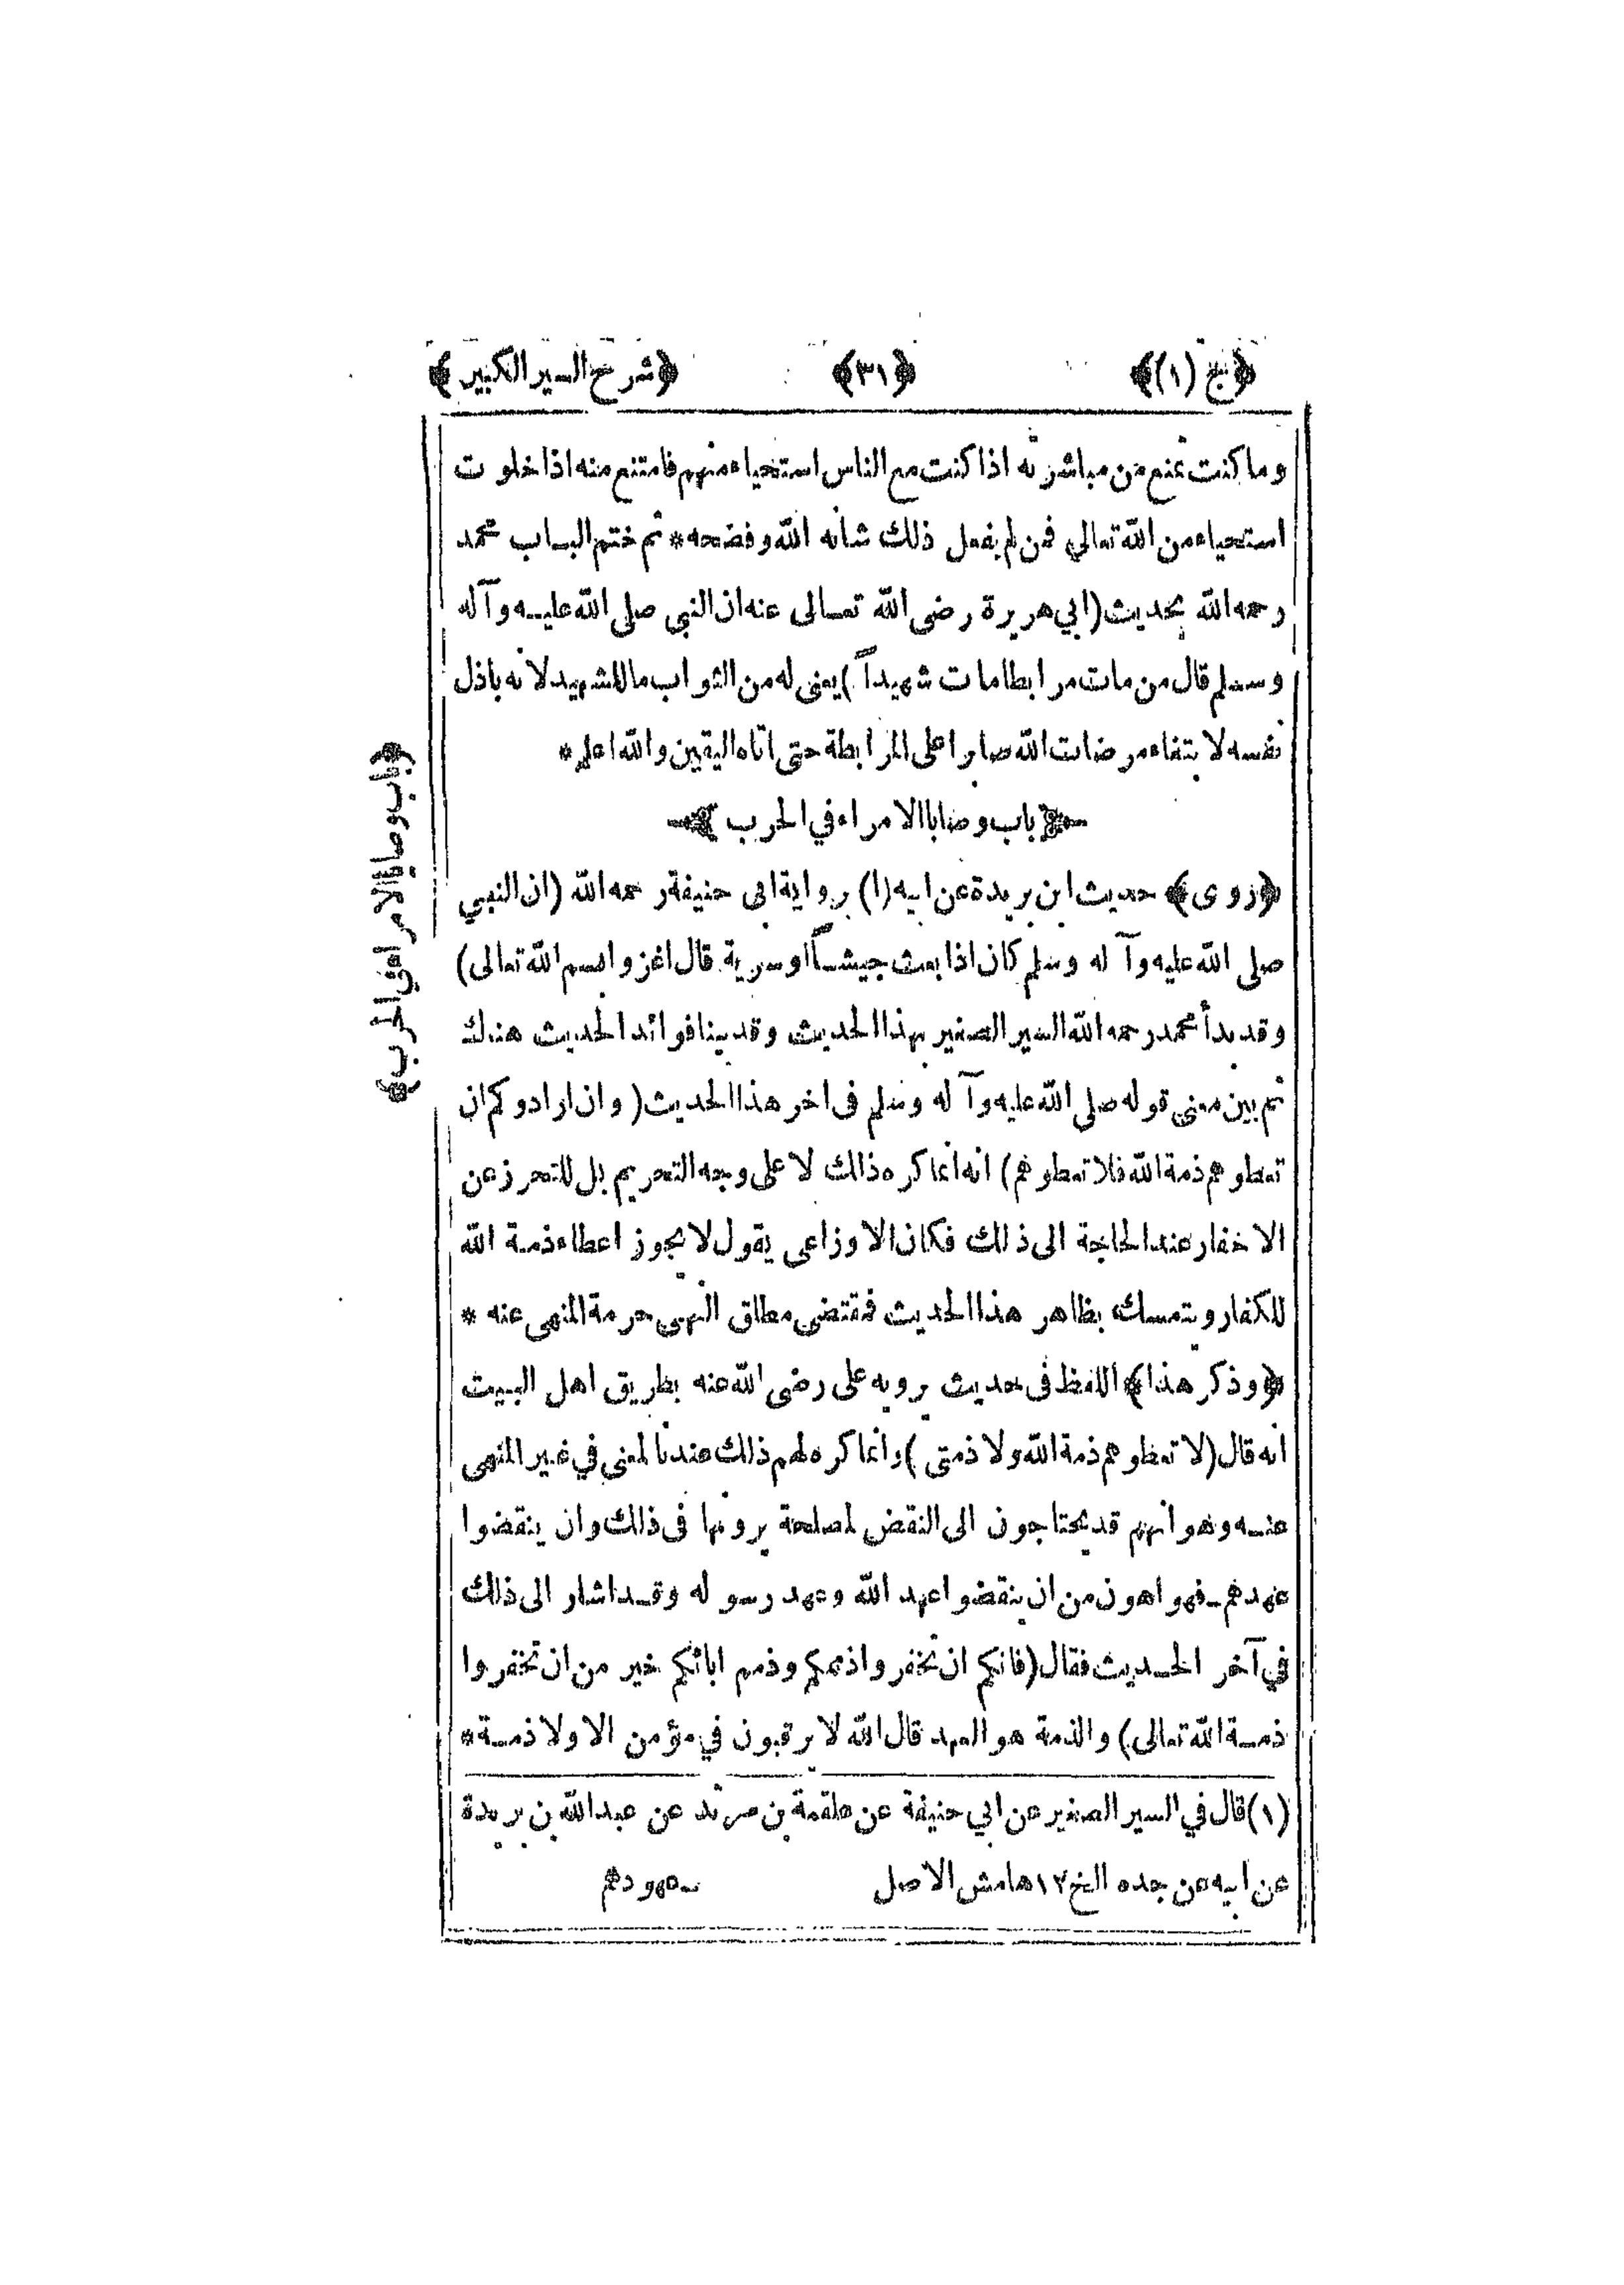 ﴿ج (١)﴾ ﴿٣١﴾ ﴿شرح السير الكبير﴾
وما كنت تمتنع من مباشرته اذا كنت مع الناس استحياء منهم فامتنع منه اذا خلوت
استحياء من الله تعالى فمن لم يفعل ذلك شانه الله وفضحه * ثم ختم الباب محمد
رحمه الله بحديث (ابي هريرة رضى الله تعالى عنه ان النبى صلى الله عليه وآله
وسلم قال من مات مرابطا مات شهيداً) يعنى له من الثواب ما للشهيد لانه باذل
نفسه لابتغاء مرضات الله صابرا على المرابطة حتى اتاه اليقين والله اعلم *
﴿باب وصايا الامراء في الحرب﴾
﴿روى﴾ حديث ابن بريدة عن ابيه (١) برواية ابى حنيفة رحمه الله (ان النبي
صلى الله عليه وآله وسلم كان اذا بعث جيشاً او سرية قال اغزوا بسم الله تعالى)
وقد بدأ محمد رحمه الله السير الصغير بهذا الحديث وقد بينا فوائد الحديث هناك
ثم بين معنى قوله صلى الله عليه وآله وسلم فى اخر هذا الحديث (وان ارادوكم ان
تعطوهم ذمة الله فلا تعطوهم) انه انما كره ذالك لا على وجه التحريم بل للتحرز عن
الاخفار عند الحاجة الى ذلك فكان الاوزاعى يقول لا يجوز اعطاء ذمة الله
للكفار ويتمسك بظاهر هذا الحديث فمقتضى مطلق النهى حرمة المنهى عنه *
﴿وذكر هذا﴾ اللفظ فى حديث يرويه على رضى الله عنه بطريق اهل البييت
انه قال (لا تعطوهم ذمة الله ولا ذمتى) وانما كره لهم ذلك عندنا لمعنى في غير المنهى
عنه وهو انهم قد يحتاجون الى النقض لمصلحة يرونها فى ذلك وان ينقضوا
عهدهم ــ فهو اهون من ان ينقضوا عهد الله وعهد رسوله وقد اشار الى ذلك
في آخر الحديث فقال (فانكم ان تخفروا ذممكم وذمم ابائكم خير من ان تخفروا
ذمة الله تعالى) والذمة هو العهد قال الله لا يرقبون في مؤمن الا ولا ذمة *
(١) قال في السير الصغير عن ابي حنيفة عن علقمة بن مرثد عن عبد الله بن بريدة
عن ابيه عن جده الخ ١٢ هامش الاصل ــ عهودهم
﴿باب وصايا الامراء في الحرب﴾